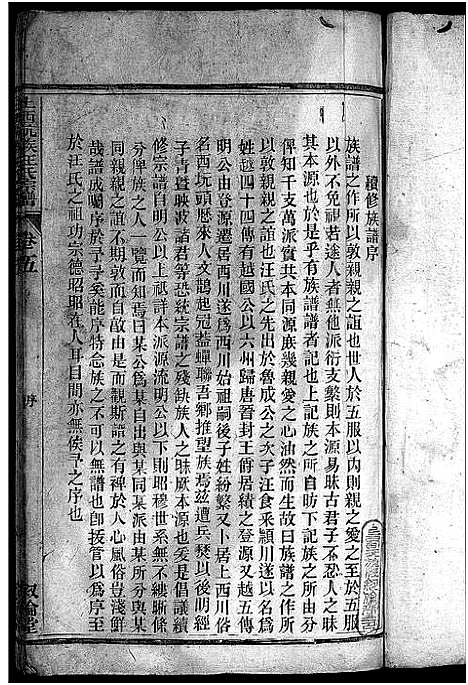 續修族譜序
族譜之作所以敦親親之誼也世人於五服以內則親之愛之至於五服
以外不免祖若途人者無他派衍支繁則本源易昧古君子不忍人之昧
其本源也於是乎有族譜譜者記也上記族之所自昉下記族之所由分
俾知千支萬派實共本同源庶幾親愛之心油然而生故曰族譜之作所
以敦親親之誼也汪氏之先出於魯成公之次子汪食采潁川遂以名為
姓越四十四傳有越國公以六州歸唐晉封王爵居績之登源越五傳
明公由登源遷居西川遂為西川始祖嗣後子姓紛繁又卜居上西川俗
名西坑頭歷來人文鵲起冠蓋蟬聯吾鄉推望族焉茲遭兵燹以後明經
子青暨映波諸君等恐統宗譜之殘缺族人之昧厥本源也爰倡議續
修宗譜自明公以上祇詳本派源流明公以下則昭穆世系無不縷晰條
分俾族之人一覽而知曰某公為某自出與某同某派由某所分與某
同親親之誼不戢而自敵由是而觀斯譜之有裨於人心風俗豈淺鮮
哉譜成囑序於予予奚能序特念族之不可以無譜也卽援管以為序至
於汪氏之祖功宗德昭昭在人耳目間亦無俟予之序也
上西坑族汪氏宗譜
卷五
序
敘倫堂